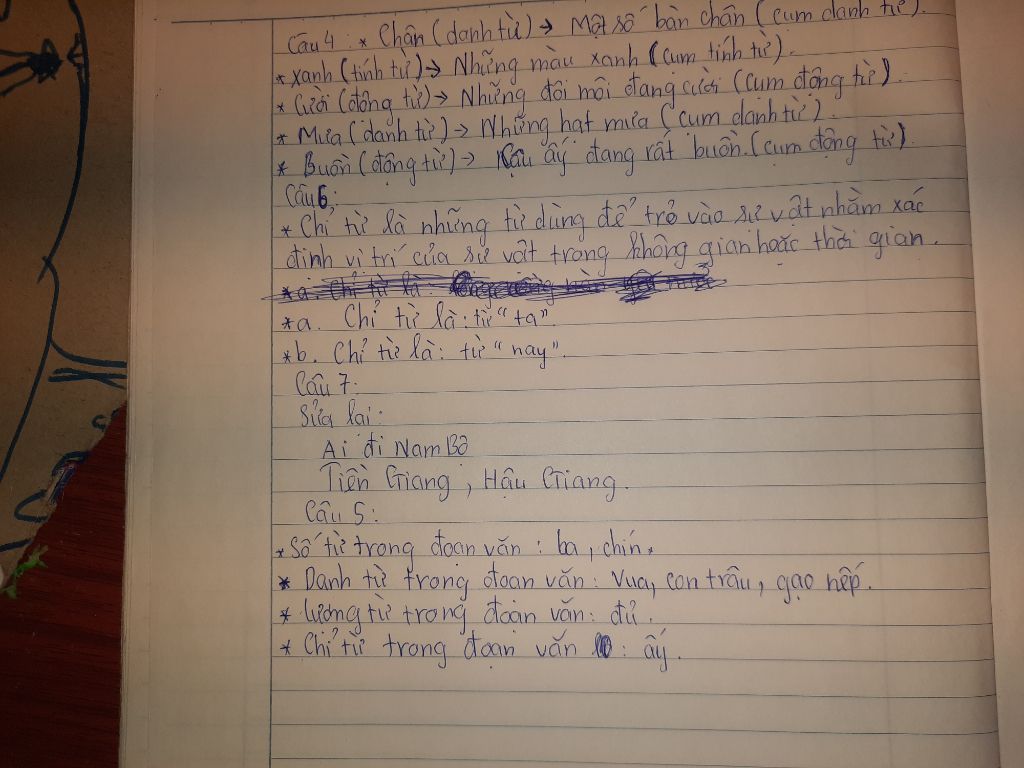 Câu 4: * Chân (danh từ) → Một số bàn chân (cụm danh từ).
* Xanh (tính từ) → Những màu xanh (cụm tính từ).
* Cười (động từ) → Những đôi môi đang cười (cụm động từ).
* Mưa (danh từ) → Những hạt mưa (cụm danh từ).
* Buồn (động từ) → Cậu ấy đang rất buồn. (cụm động từ)
Câu 6:
* Chỉ từ là những từ dùng để trỏ vào sự vật nhằm xác
định vị trí của sự vật trong không gian hoặc thời gian.
*a. Chỉ từ là
*a. Chỉ từ là: từ "ta".
*b. Chỉ từ là: từ "nay".
Câu 7:
Sửa lại:
Ai đi Nam Bộ
Tiền Giang, Hậu Giang.
Câu 5:
* Số từ trong đoạn văn: ba, chín.
* Danh từ trong đoạn văn: Vua, con trâu, gạo nếp.
* Lượng từ trong đoạn văn: đủ.
* Chỉ từ trong đoạn văn : ấy.